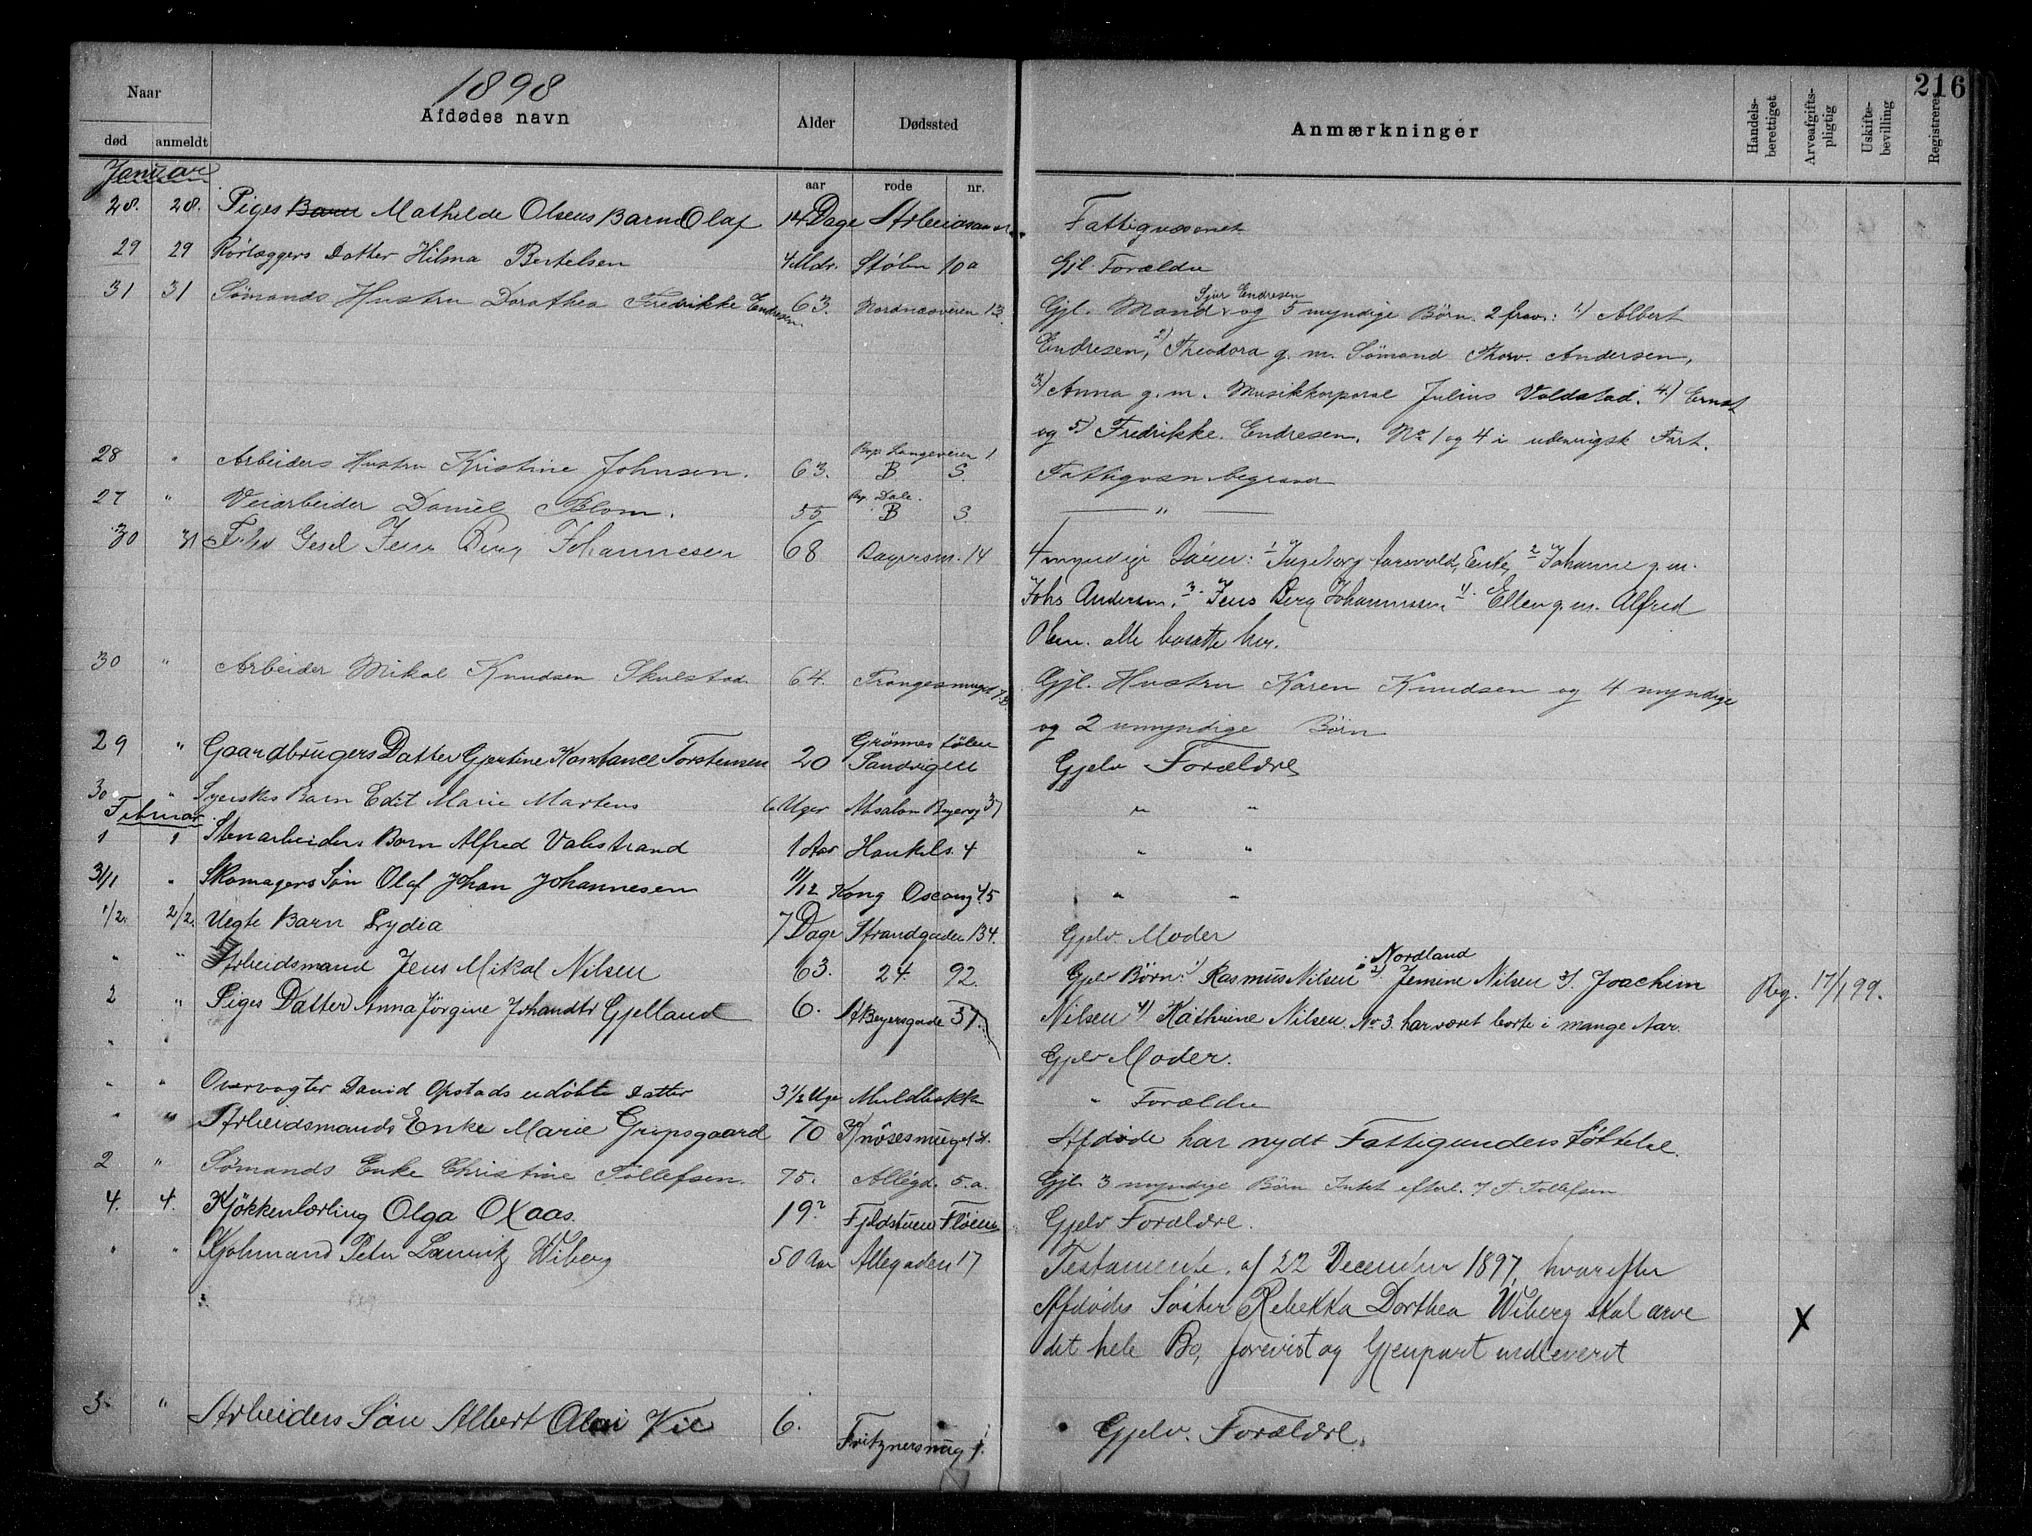 216
1898
Naar
Afdødes navn
Alder
Dødssted
Anmærkninger
Handels-berettiget
Arveafgifts-pligtig
Uskifte-bevilling
Registreret
død anmeldt
aar rode nr.
Januar
28. 28. Piges Barn Mathilde Olsens Barn Olaf 14 Dage Fattigvæsenet
29 29 Rørlæggers Datter Hilma Bertelsen 4 Mdr. Stølen 10a Gjl. Forældre
31 31 Sømands Hustru Dorothea Fredrikke Endresen 63. Nordnæsveien 13.
Gjl. Mand Sjur Endresen og 5 myndige Børn. 2 frav: 1) Albert
Endresen, 2) Theodora g. m. Sømand Thorv. Andersen,
3) Anna g. m. Musikkorporal Julius Voldstad. 4) Ernst
og 5) Fredrikke Endresen. No 1 og 4 i udenrigsk Fart.
28 " Arbeiders Hustru Kristine Johnsen. 63. B S. Fattigvæs. begraver
27 " Veiarbeider Daniel Blom. 55 Dale. B S. — " —
30 31 Gesel Jens Berg Johannesen 68 14
4 myndige Børn: 1 Ingeborg Enke, 2 Johanne g. m.
Johs Andersen, 3. Jens Berg Johannessen, 4. Ellen g. m. Alfred
Olsen. alle bosatte her.
30 " Arbeider Mikal Knudsen Skulstad. 64.
Gjl. Hustru Karen Knudsen og 4 myndige
og 2 umyndige Børn
29 " Gaardbrugers Datter Gjertine Konstance Torstensen 20 Grønnestølen Sandvigen Gjelv Forældre
30 " Syerskes Barn Edit Marie Martens 6 Uger Absalon Beyersg 37 " "
Februar
1 1 Stenarbeiders Barn Alfred Valestrand 1 Aar Haukels. 4 " "
31/1 " Skomagers Søn Olaf Johan Johannesen 11/12 Kong Oscarsg 45 " "
1/2. 2/2. Uegte Barn Lydia 7 Dage Strandgaden 134. Gjelv. Moder
" " Arbeidsmand Jens Mikal Nilsen 63. 24. 92.
Gjelv Børn: 1) Rasmus Nilsen, Nordland 2) Jensine Nilsen 3). Joachim
Nilsen 4) Kathrine Nilsen. No 3. har været borte i mange Aar.
Reg. 17/199.
2 " Piges Datter Anna Jørgine Gjelland 6. A Beyersgade 37. Gjelv Moder.
" " Overvogter David Opstads udøbte Datter 3 1/2 Uge " Forældre
" " Arbeidsmands Enke Marie Gripsgaard 70 Knøsesmuget Afdøde har nydt Fattigunderstøttelse.
2 " Sømands Enke Christine Tollefsen. 75. Allégd. 5.a. Gjl. 3 myndige Børn Intet efterl. Tollefsen
4. 4. Kjøkkenlærling Olga Oxaas. 19 Fjeldstuen Fløien Gjelv Forældre.
" " Peter Lauritz Wiberg 50 Aar Allegaden 17
Testamente af 22 December 1897, hvorefter
Afdødes Søster Rebekka Dorthea Wiberg skal arve
det hele Bo, forevist og Gjenpart indleveret
X
3. " Arbeiders Søn Albert Olai Vie 6. Fritznersmug 1. Gjelv. Forældre.